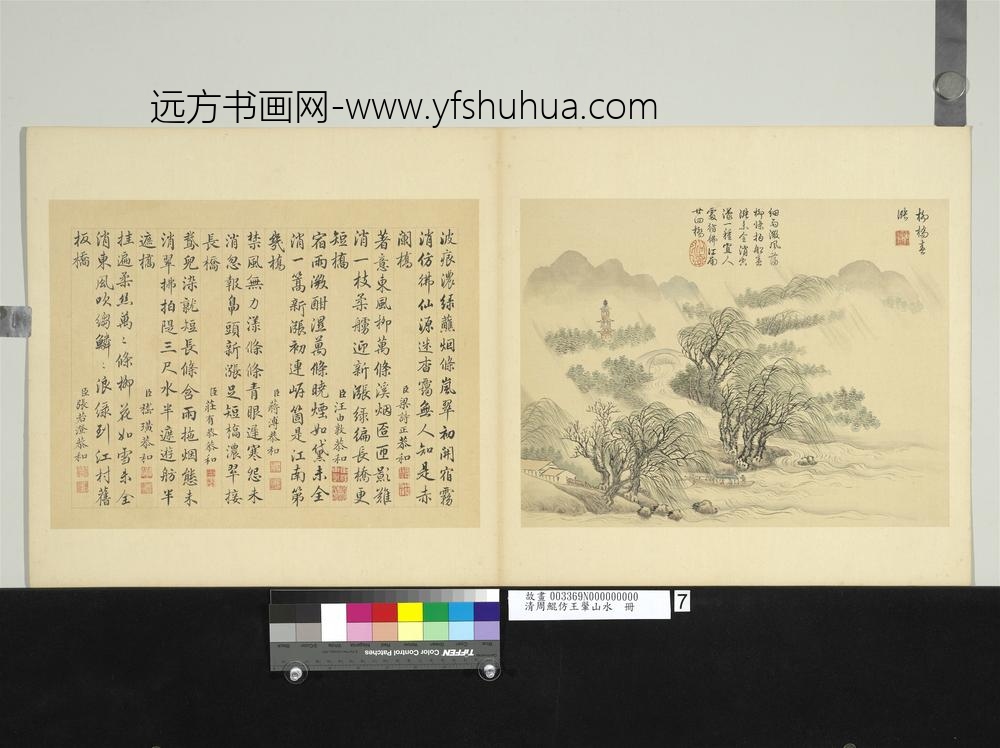 远方书画网-www.yfshuhua.com
柳橋春
漲
細雨微風蕩
柳條拍船春
漲未全消空
濛一種宜人
處彷彿江南
廿四橋
波痕濃綠蘸烟條嵐翠初開宿霧
消仿彿仙源迷杏靄無人知是赤
闌橋
臣梁詩正恭和
著意東風柳萬條溪烟匝匝影難
消一枝柔艣迎新漲綠徧長橋更
短橋
臣汪由敦恭和
宿雨漵酣濕萬條曉煙如黛未全
消一篙新漲初連岸箇是江南第
幾橋
臣蔣溥恭和
禁風無力漾條條青眼遲寒怨未
消忽報鳧頭新漲足短橋濃翠接
長橋
臣莊有恭恭和
鵞兒染就短長條含雨拖烟態未
消翠拂拍隄三尺水半遮遊舫半
遮橋
臣嵇璜恭和
挂遍柔絲萬萬條柳花如雪未全
消東風吹縐鱗鱗浪綠到江村舊
板橋
臣張若澄恭和
故畫 003369N000000000
清周鯤仿王翬山水 冊
7
TIFFEN Color Control Patches
Blue
Cyan
Green
Yellow
Red
Magenta
White
3/Color
Black